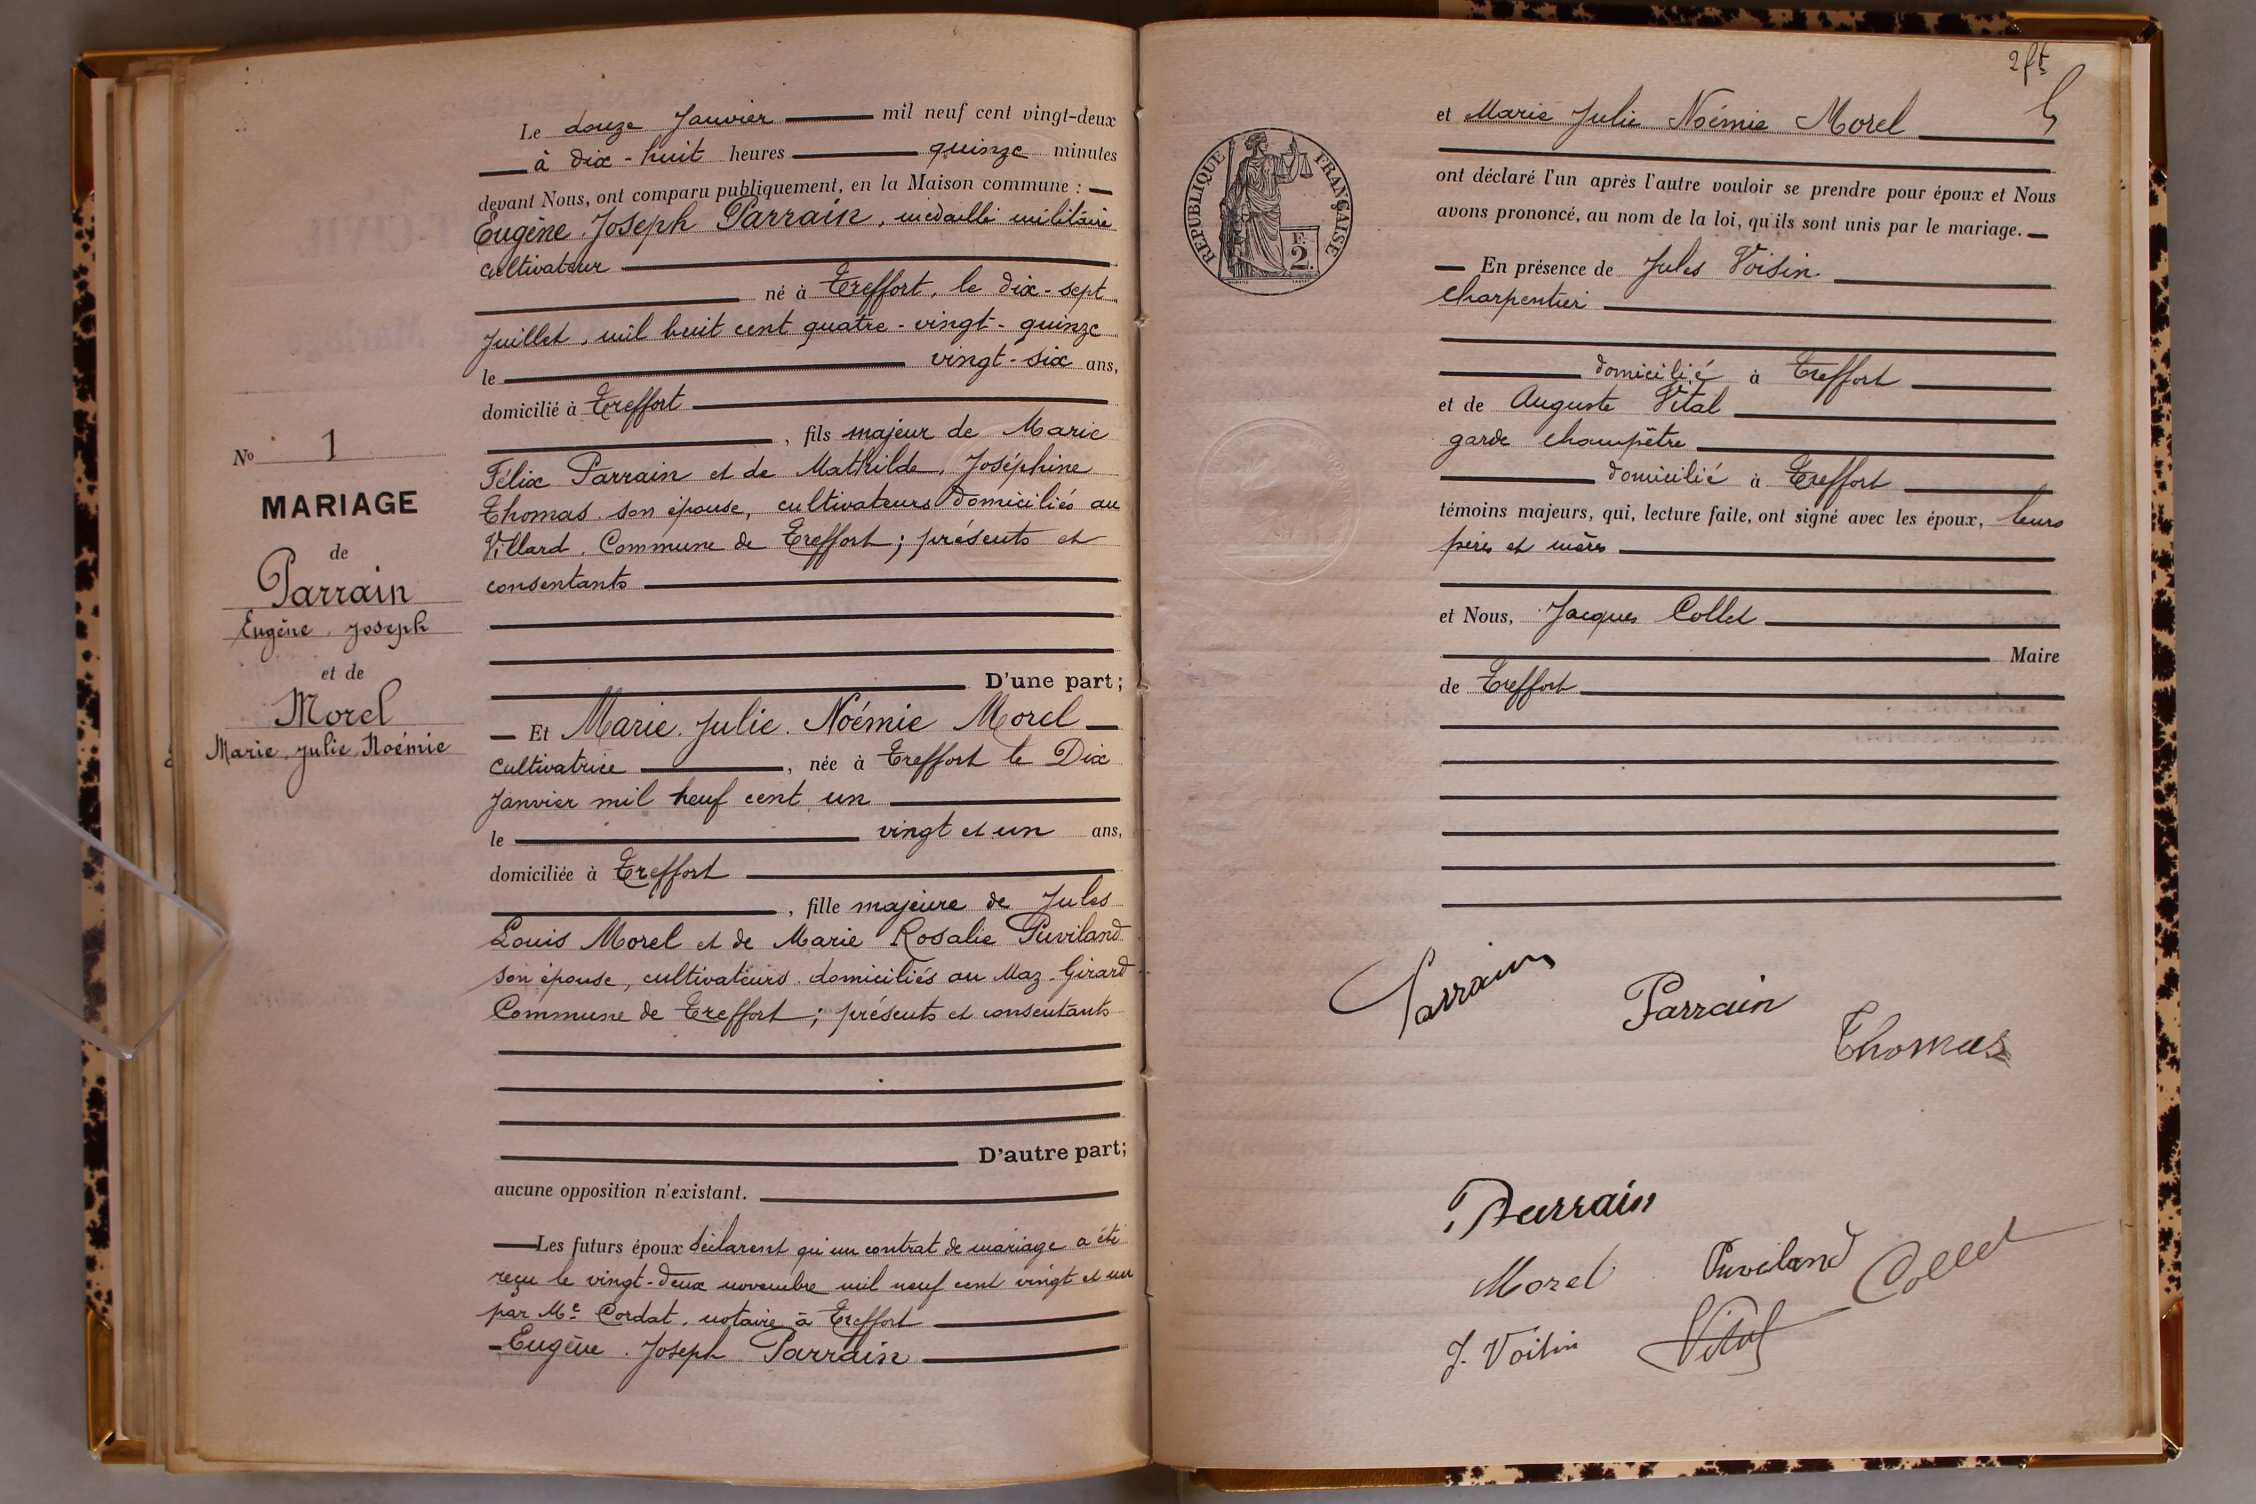 Le douze Janvier mil neuf cent vingt-deux
à dix-huit heures quinze minutes
devant Nous, ont comparu publiquement, en la Maison commune :
Eugène, Joseph Parrain, médaillé militaire
cultivateur
né à Treffort, le dix-sept
Juillet, mil huit cent quatre-vingt-quinze
le vingt-six ans,
domicilié à Treffort
, fils majeur de Marie
Félix Parrain et de Mathilde, Joséphine
Thomas son épouse, cultivateurs domiciliés au
Villard, Commune de Treffort; présents et
consentants
D'une part;
Et Marie, Julie, Noémie Morel
cultivatrice, née à Treffort le Dix
Janvier mil neuf cent un
le vingt et un ans,
domiciliée à Treffort
, fille majeure de Jules
Louis Morel et de Marie Rosalie Puviland
son épouse, cultivateurs domiciliés au Maz-Girard
Commune de Treffort; présents et consentants
D'autre part;
aucune opposition n'existant.
Les futurs époux déclarent qu'un contrat de mariage a été
reçu le vingt-deux novembre mil neuf cent vingt et un
par Me Cordat, notaire à Treffort
Eugène, Joseph Parrain
No 1
MARIAGE
de
Parrain
Eugène, Joseph
et de
Morel
Marie, Julie, Noémie
et Marie Julie Noémie Morel
ont déclaré l'un après l'autre vouloir se prendre pour époux et Nous
avons prononcé, au nom de la loi, qu'ils sont unis par le mariage.
En présence de Jules Voisin
charpentier
domicilié à Treffort
et de Auguste Vital
garde champêtre
domicilié à Treffort
témoins majeurs, qui, lecture faite, ont signé avec les époux, leurs
pères et mères
et Nous, Jacques Collet
Maire
de Treffort
RÉPUBLIQUE FRANÇAISE
F.
2
Parrain
Parrain
Thomas
Parrain
Morel Puviland Collet
J. Voisin Vital